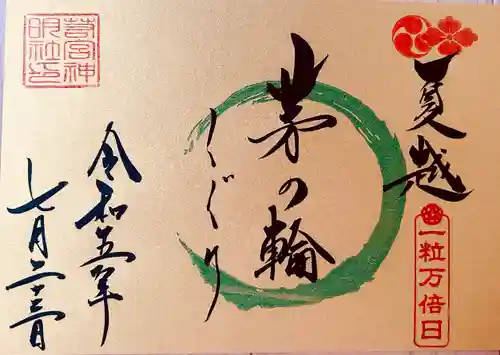 若宮神
明社印
夏越
一粒万倍日
茅の輪
くぐり
令和五年
七月二十三日